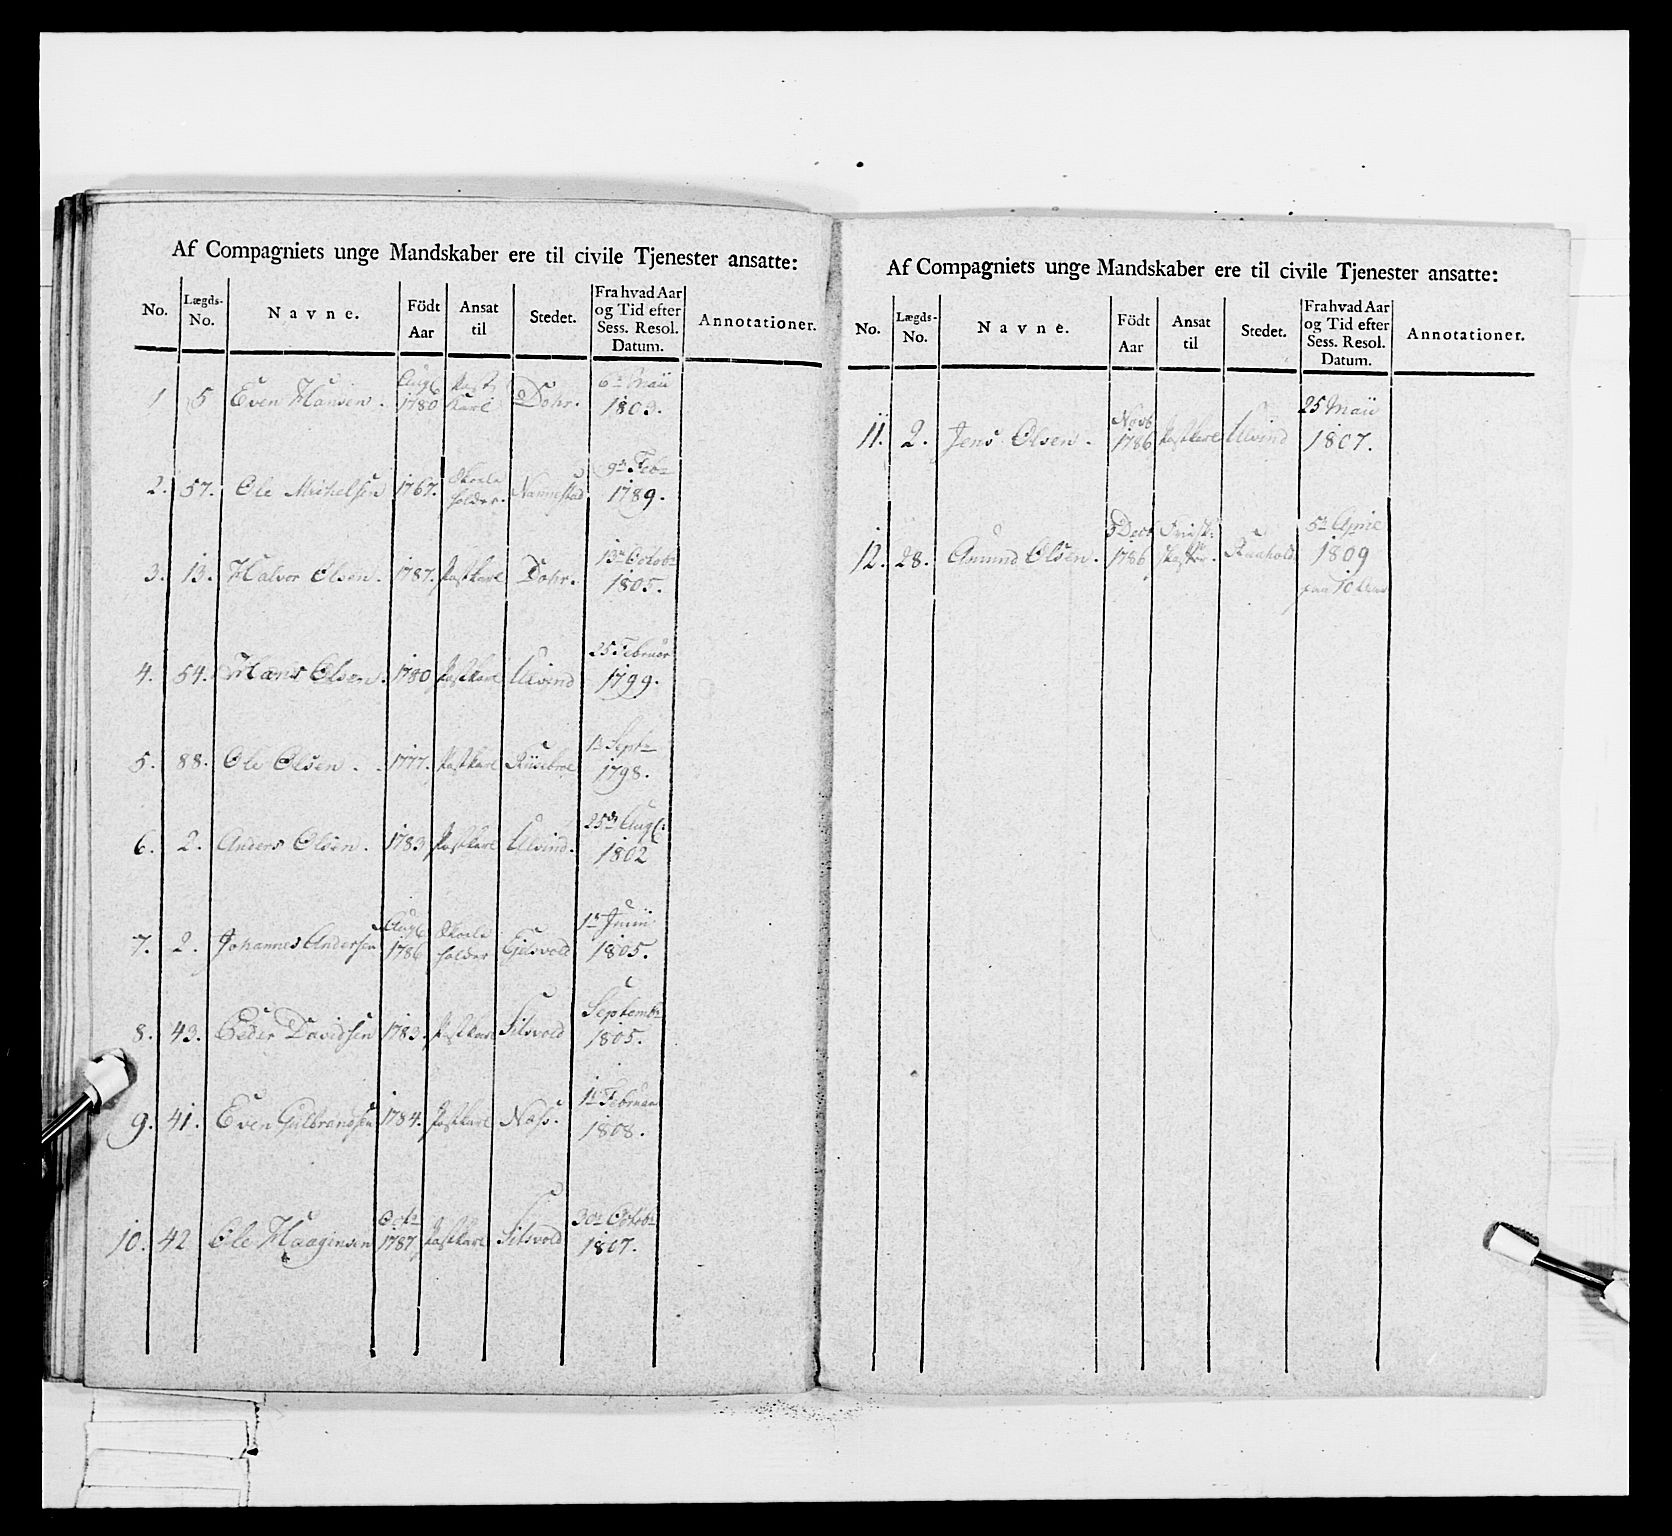 Af Compagniets unge Mandskaber ere til civile Tjenester ansatte:
No. Lægds-No. Navne. Födt Aar Ansat til Stedet. Fra hvad Aar og Tid efter Sess. Resol. Datum. Annotationer.
1 5 Even Hansen. Aug 1780 Post Karl Dohr. 6te Maii 1803.
2. 57. Ole Michelsen 1767. Skole holder. Nannestad 9de Feb 1789.
3. 13. Halvor Olsen. 1787. Postkarl Dohr. 13de Octobr 1805.
4. 54. Hans Olsen. 1780 Postkarl Ulvind 25 Februar 1799.
5. 88. Ole Olsen. 1777. Postkarl 1te Septr 1798.
6. 2. Anders Olsen. 1783 Postkarl Ulvind. 25de Aug: 1802
7. 2. Johannes Andersen Aug 1786 Skole holder Ejdsvold 1te Junii 1805.
8. 43. Peder Davidsen 1783. Postkarl Septembr 1805.
9. 41. Even Gulbrandsen 1784. Postkarl Næss. 1te Februar 1808.
10. 42 Ole Haagensen Octr 1787 Postkarl 30te Octobr 1807.
Af Compagniets unge Mandskaber ere til civile Tjenester ansatte:
No. Lægds-No. Navne. Födt Aar Ansat til Stedet. Fra hvad Aar og Tid efter Sess. Resol. Datum. Annotationer.
11. 2. Jens Olsen. Novb 1786 Postkarl Ulvind 25 Maii 1807.
12. 28. Amund Olsen. Decb 1786 Raahold 5te April 1809 paa 10 Aar